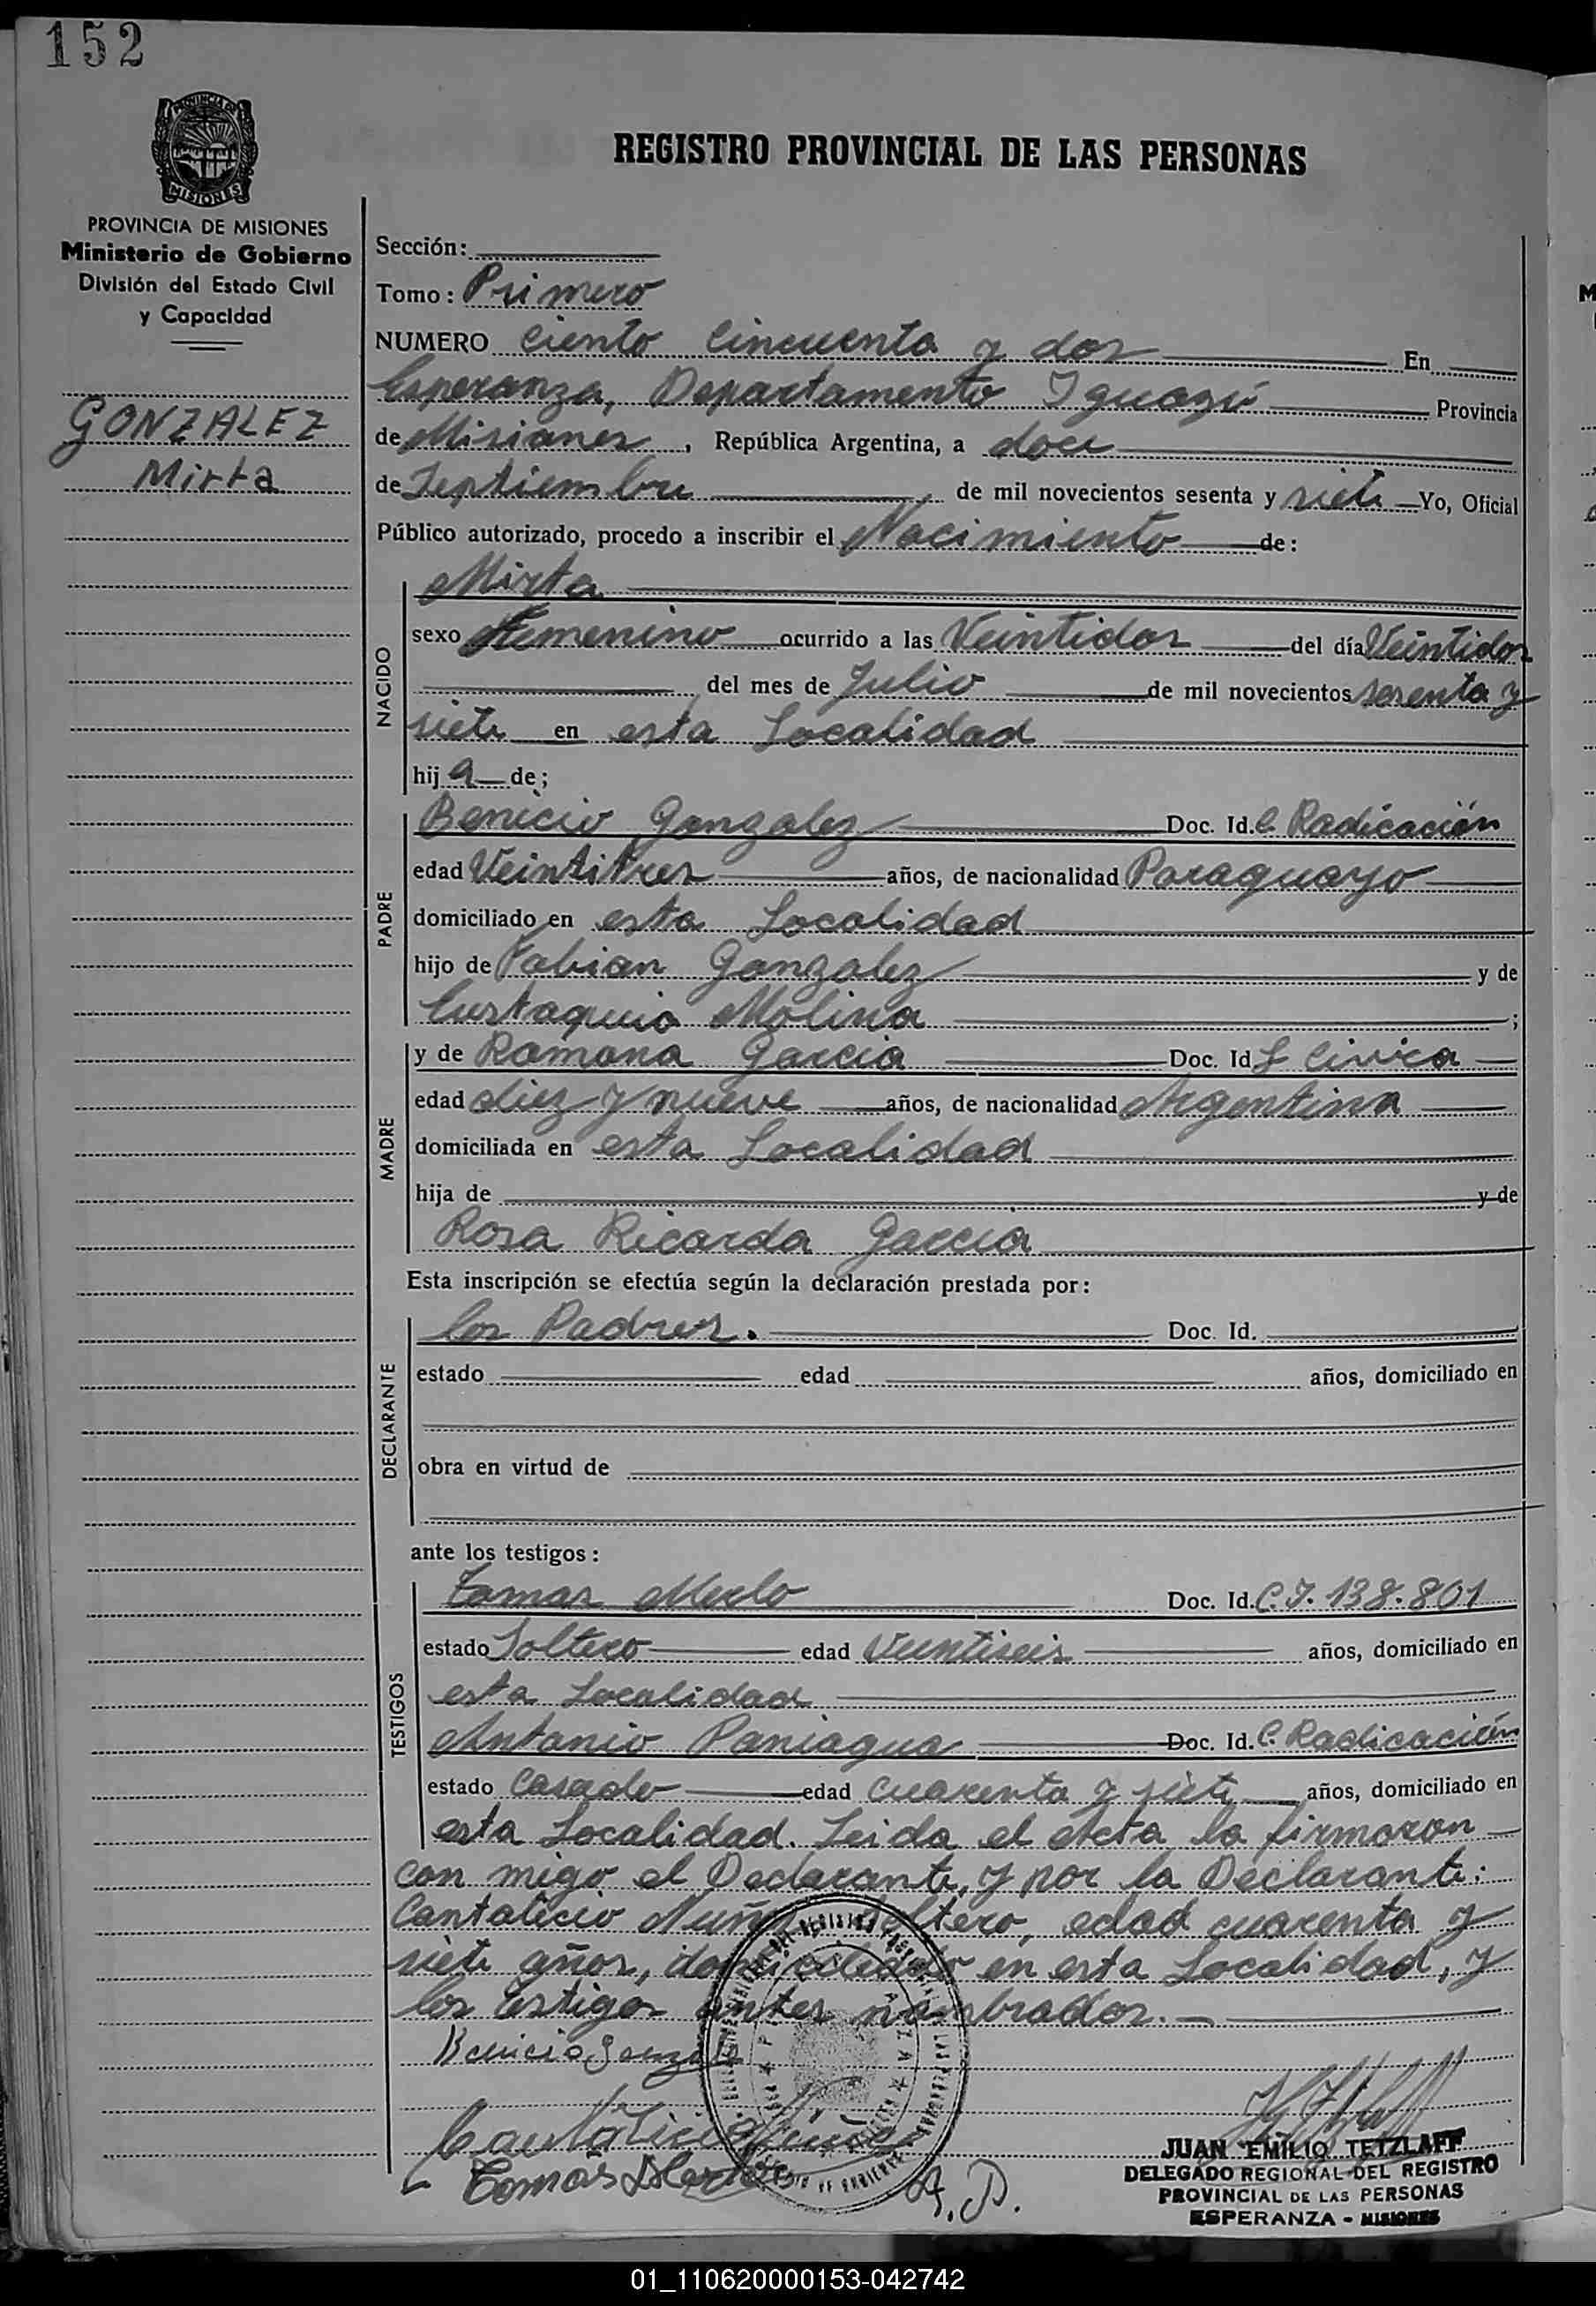 152
PROVINCIA DE MISIONES
PROVINCIA DE MISIONES
Ministerio de Gobierno
División del Estado Civil
y Capacidad
GONZALEZ
Mirta
REGISTRO PROVINCIAL DE LAS PERSONAS
Sección:
Tomo: Primero
NUMERO Ciento Cincuenta y dos En
Esperanza, Departamento Iguazú Provincia
de Misiones, República Argentina, a doce
de Septiembre, de mil novecientos sesenta y siete Yo, Oficial
Público autorizado, procedo a inscribir el Nacimiento de:
NACIDO
Mirta
sexo Femenino ocurrido a las Veintidos del día Veintidos
del mes de Julio de mil novecientos sesenta y
siete en esta Localidad
hija de;
PADRE
Benicio Gonzalez Doc. Id. C. Radicación
edad Veintitres años, de nacionalidad Paraguayo
domiciliado en esta Localidad
hijo de Fabian Gonzalez y de
Eustaquia Molina ;
MADRE
y de Ramona Garcia Doc. Id L Civica
edad diez y nueve años, de nacionalidad Argentina
domiciliada en esta Localidad
hija de y de
Rosa Ricarda Garcia
Esta inscripción se efectúa según la declaración prestada por:
DECLARANTE
los Padres. Doc. Id.
estado edad años, domiciliado en
obra en virtud de
ante los testigos:
TESTIGOS
Tomas Merlo Doc. Id. C.I. 138.801
estado Soltero edad Veintiseis años, domiciliado en
esta Localidad
Antonio Paniagua Doc. Id. C. Radicación
estado Casado edad cuarenta y siete años, domiciliado en
esta Localidad. Leida el Acta la firmaron
con migo el Declarante, y por la Declarante:
Cantalicio Nuñez Soltero, edad cuarenta y
siete años, domiciliado en esta Localidad, y
los testigos antes nombrados.-
Benicio Gonzalez
Cantalicio
Tomás Merlo
A. P.
JUAN EMILIO TETZLAFF
DELEGADO REGIONAL DEL REGISTRO
PROVINCIAL DE LAS PERSONAS
ESPERANZA - MISIONES
01_110620000153-042742